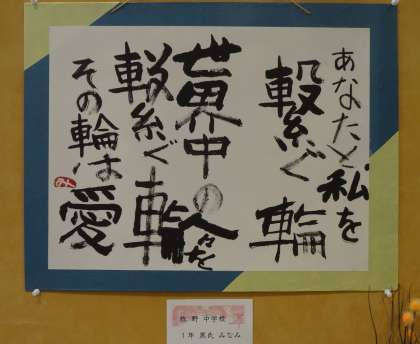 あなたと私を
繋ぐ輪
世界中の人々を
繋ぐ輪
その輪は愛
野 中学校
1年 黒氏 みなみ